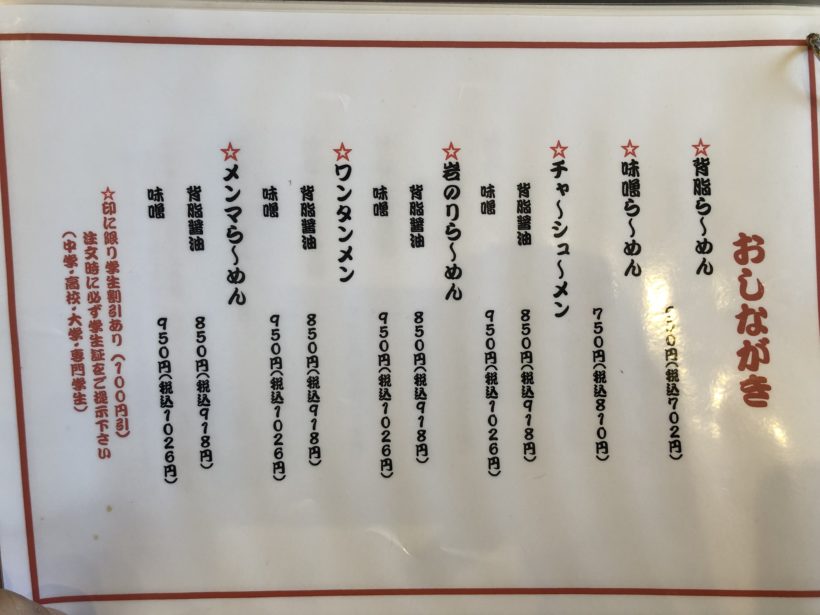 おしながき
☆背脂ら〜めん
650円(税込702円)
☆味噌ら〜めん
750円(税込810円)
☆チャ〜シュ〜メン
背脂醤油 850円(税込918円)
味噌 950円(税込1026円)
☆岩のりら〜めん
背脂醤油 850円(税込918円)
味噌 950円(税込1026円)
☆ワンタンメン
背脂醤油 850円(税込918円)
味噌 950円(税込1026円)
☆メンマら〜めん
背脂醤油 850円(税込918円)
味噌 950円(税込1026円)
☆印に限り学生割引あり(100円引)
注文時に必ず学生証をご提示下さい
(中学・高校・大学・専門学生)